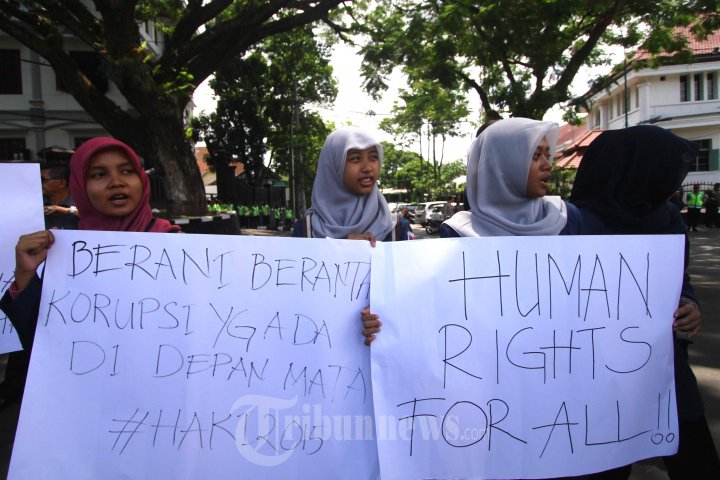 BERANI BERANTA
KORUPSI YG ADA
DI DEPAN MATA
#HAKI2015
HUMAN
RIGHTS
FOR ALL!!
Tribunnews.com